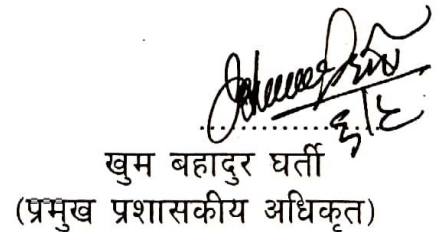 ३/९
खुम बहादुर घर्ती
(प्रमुख प्रशासकीय अधिकृत)